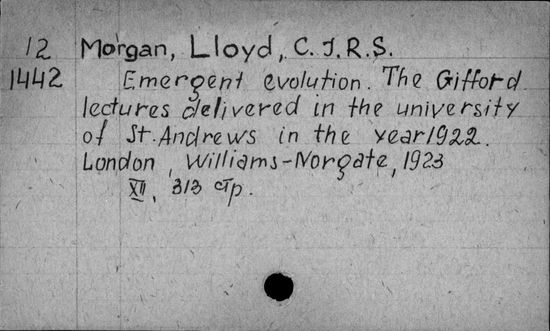 12 Morgan, Lloyd, C. J.R.S.
1442 Emergent evolution. The Gifford
lectures delivered in the university
of St. Andrews in the year 1922.
London, Williams-Norgate, 1923
XII, 313 стр.